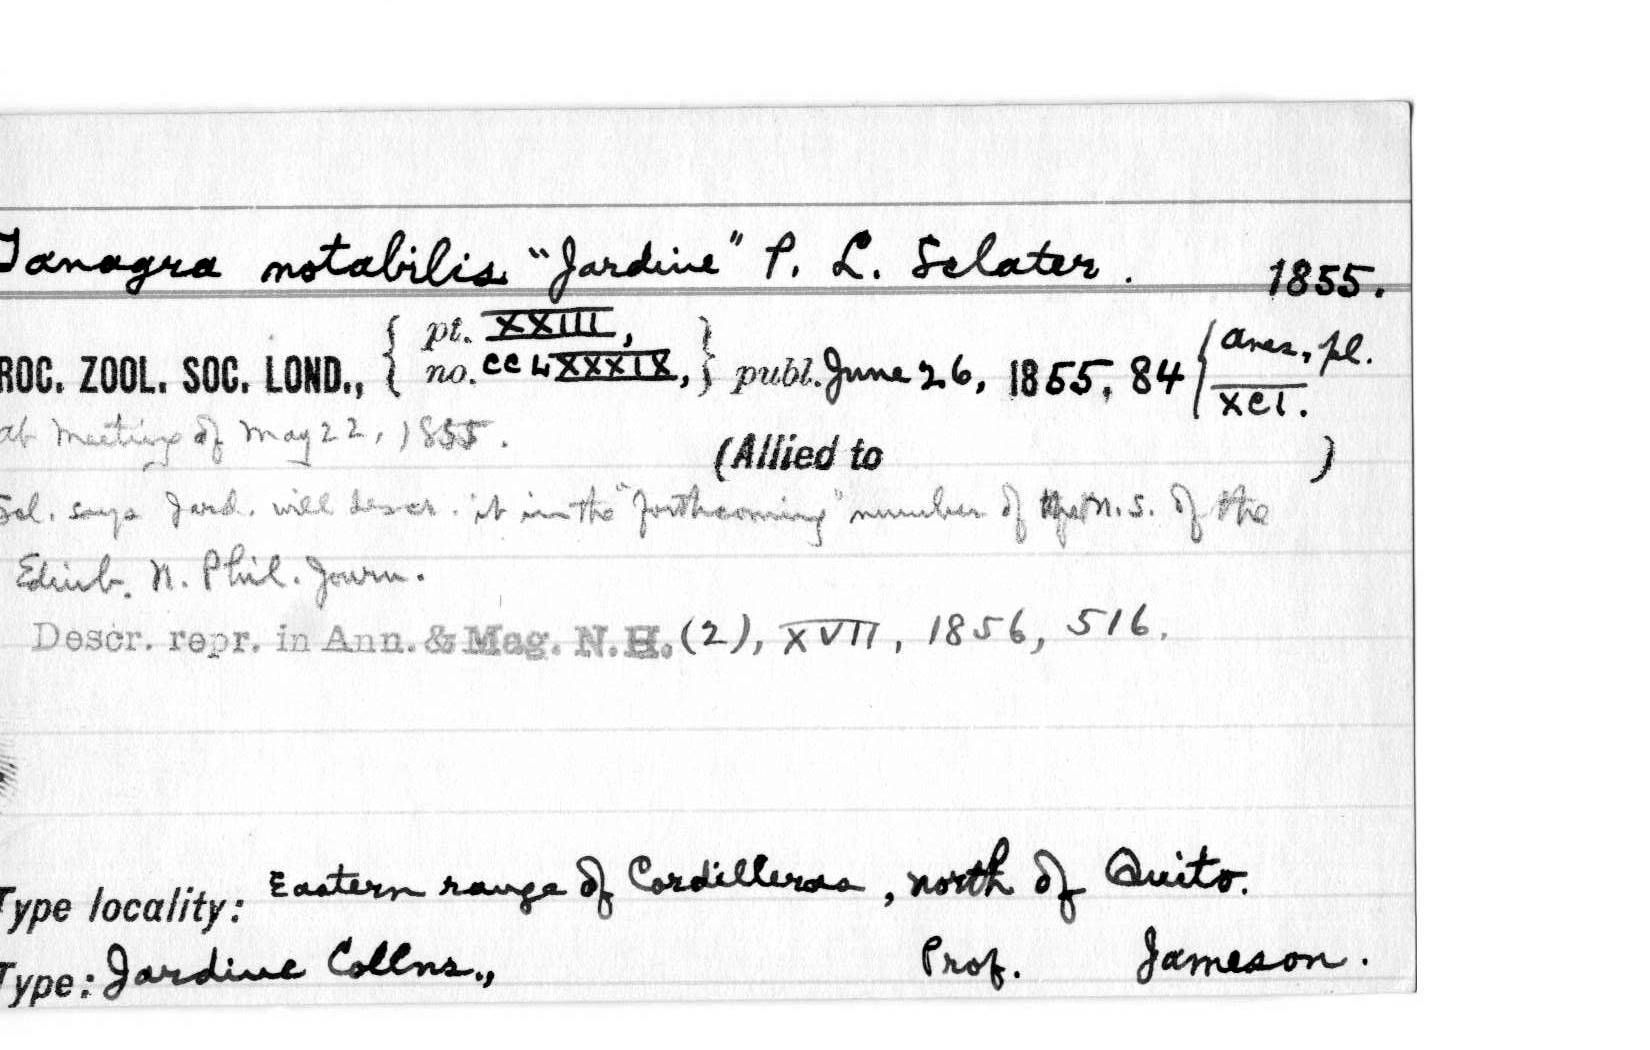 Tanagra notabilis "Jardine" P. L. Sclater. 1855.
ROC. ZOOL. SOC. LOND., { pt. XXIII, no. CCLXXXIX, } publ. June 26, 1855, 84 { Aves, pl. XCI.
at meeting of May 22, 1855.
(Allied to )
Scl. says Jard. will descr. it in the "forthcoming" number of the N.S. of the
Edinb. N. Phil. Journ.
Descr. repr. in Ann. & Mag. N.H. (2), XVII, 1856, 516.
Type locality: Eastern range of Cordilleras, north of Quito.
Type: Jardine Collns., Prof. Jameson.